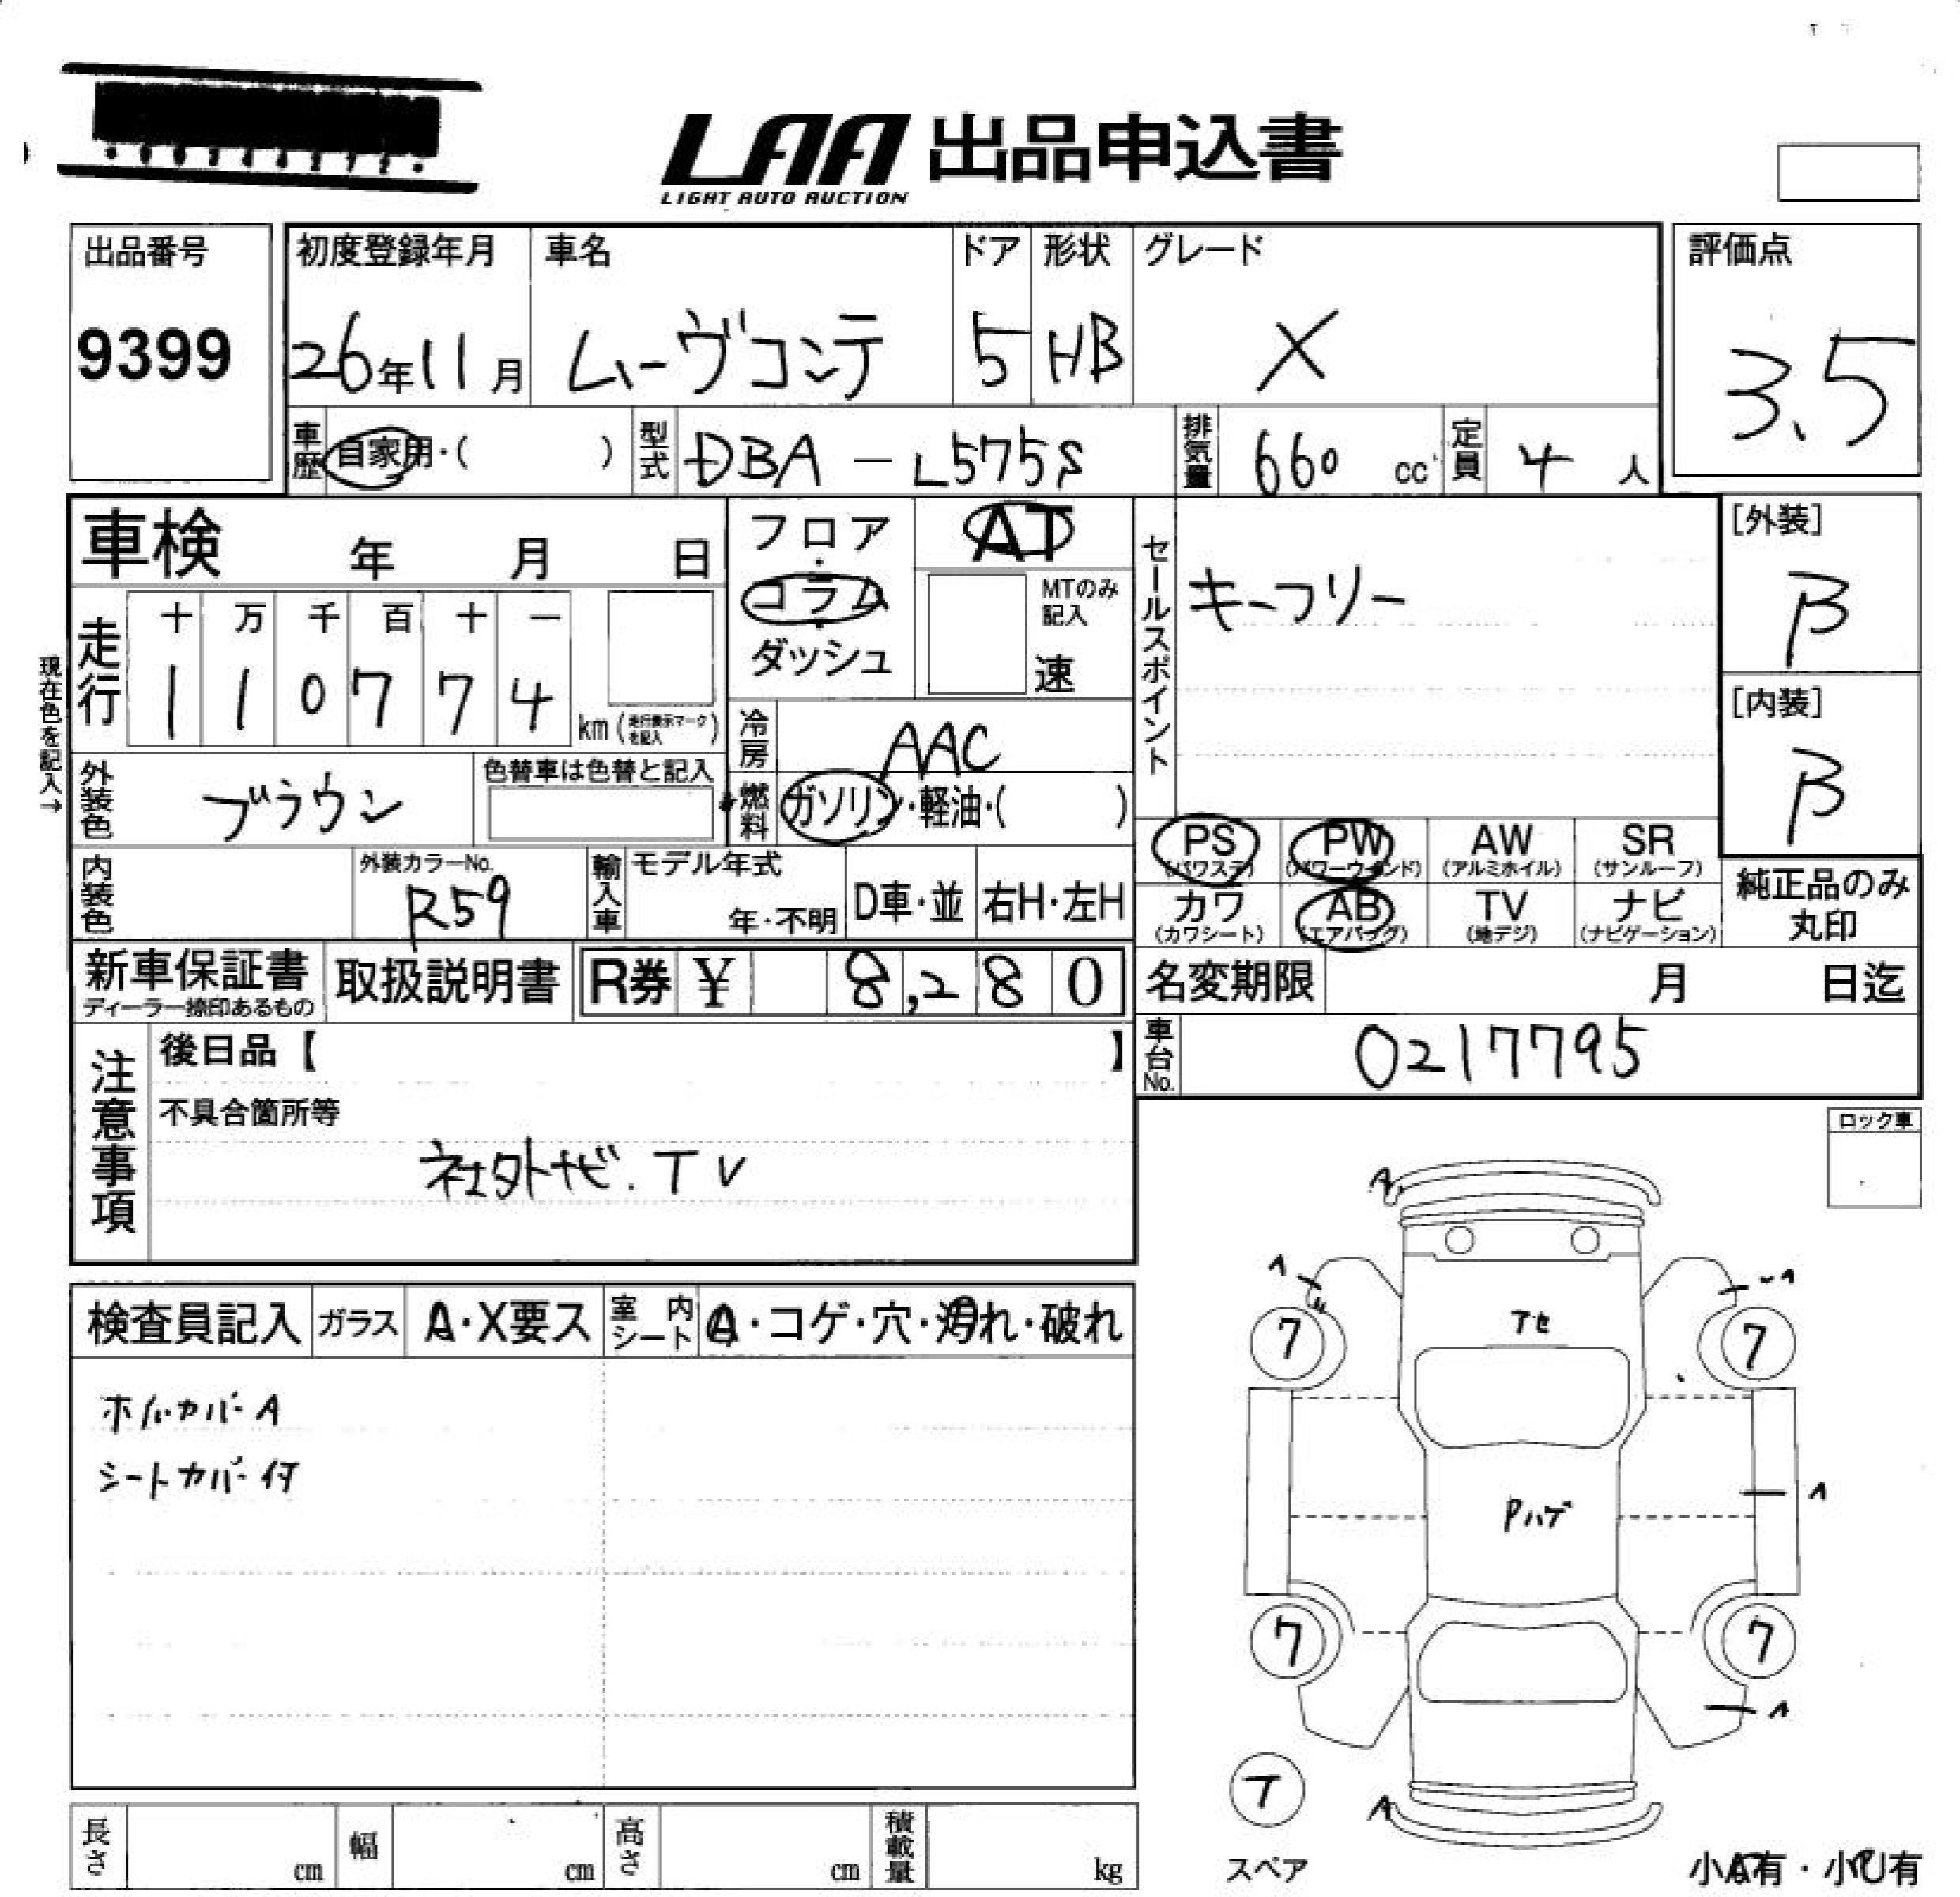 LAA 出品申込書
LIGHT AUTO AUCTION
出品番号
9399
初度登録年月
26年11月
車名
ムーヴコンテ
ドア
5
形状
HB
グレード
X
評価点
3.5
車歴 自家用・( )
型式 DBA-L575S
排気量 660 cc
定員 4 人
車検 年 月 日
フロア・コラム・ダッシュ
AT
MTのみ記入
速
セールスポイント
キーフリー
[外装]
β
[内装]
β
現在色を記入→
走行
十 万 千 百 十 一
1 1 0 7 7 4
km (走行表示マークを記入)
冷房 AAC
外装色 ブラウン
色替車は色替と記入
燃料 ガソリン・軽油・( )
PS (パワステ)
PW (パワーウインド)
AW (アルミホイル)
SR (サンルーフ)
カワ (カワシート)
AB (エアバッグ)
TV (地デジ)
ナビ (ナビゲーション)
純正品のみ
丸印
内装色
外装カラーNo.
R59
輸入車
モデル年式
年・不明
D車・並
右H・左H
新車保証書
ディーラー捺印あるもの
取扱説明書
R券 ¥ 8,280
名変期限 月 日迄
車台No. 0217795
注意事項
後日品【 】
不具合箇所等
社外ナビ.TV
ロック車
検査員記入
ガラス A・X要ス
室内シート A・コゲ・穴・汚れ・破れ
ホイルカバーA
シートカバー付
A
A
U
A
7
7
アセ
A
Pハゲ
7
7
A
T
スペア
A
小A有・小U有
長さ cm
幅 cm
高さ cm
積載量 kg